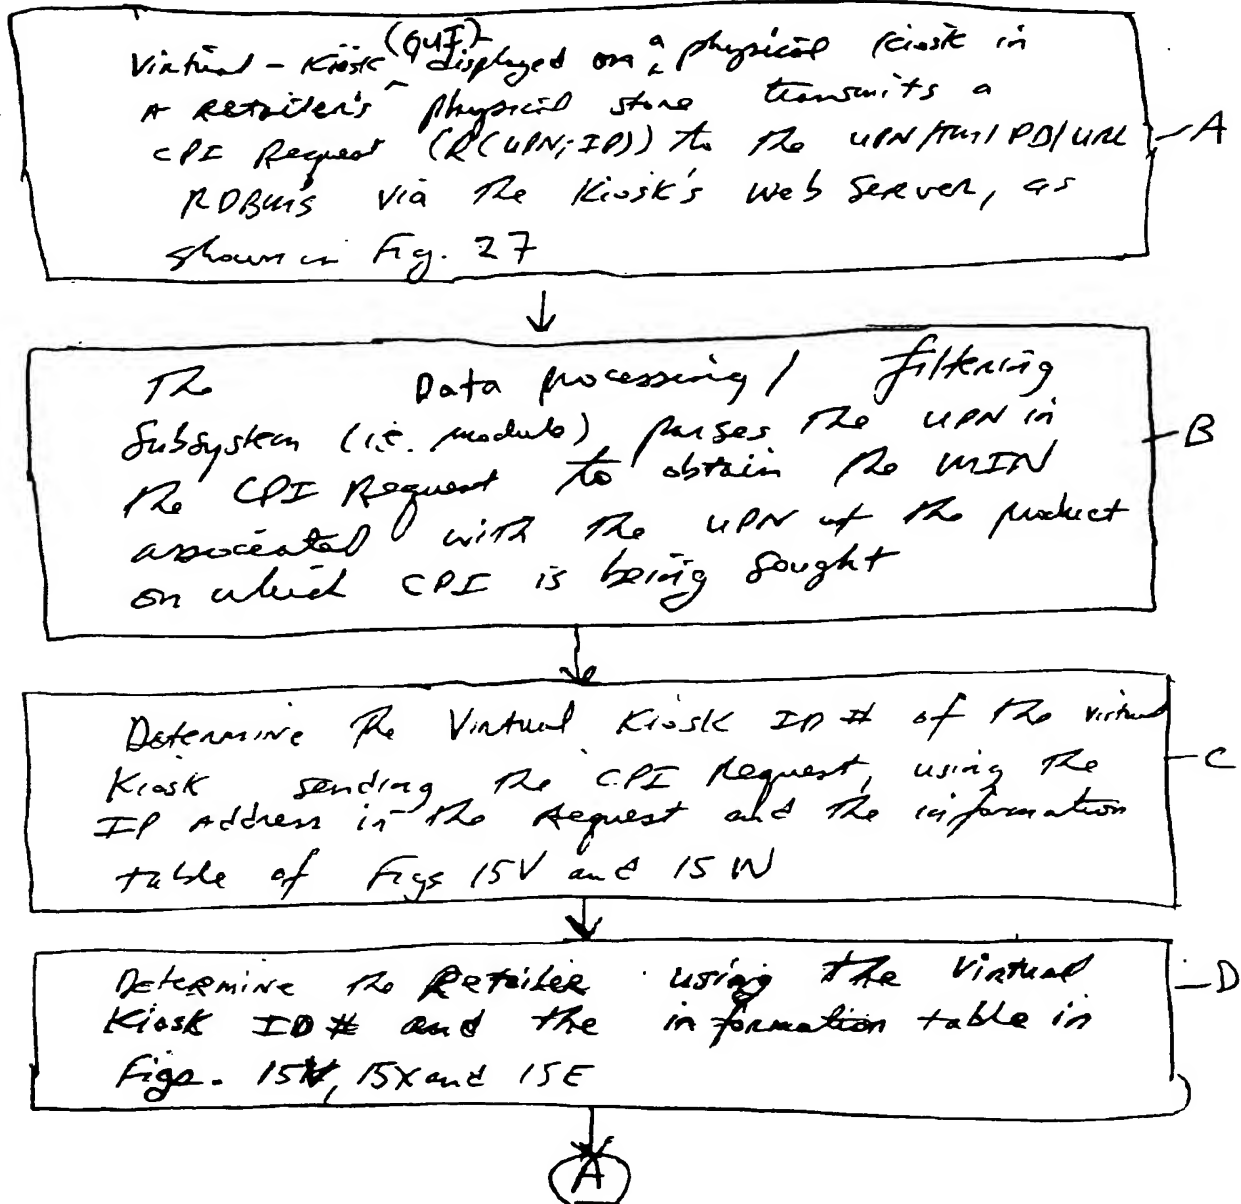 (GUI)
Virtual-Kiosk displayed on a physical kiosk in
A Retailer's physical store transmits a
CPI Request (R(UPN; IP)) to the UPN/TM/PD/URL
RDBMS via the Kiosk's Web Server, as
shown in Fig. 27
A
The Data processing / filtering
Subsystem (i.e. module) parses the UPN in
the CPI Request to obtain the MIN
associated with the UPN of the product
on which CPI is being sought
B
Determine the Virtual Kiosk ID # of the virtual
Kiosk sending the CPI Request, using the
IP Address in the Request and the information
table of Figs 15V and 15W
C
Determine the Retailer using the Virtual
Kiosk ID # and the information table in
Figs. 15X and 15E
D
A